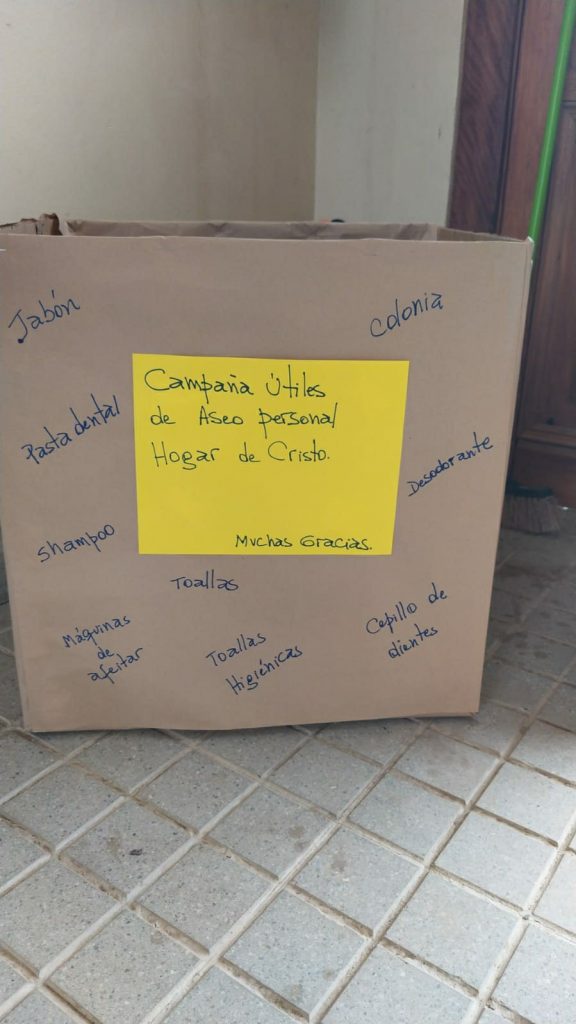 Jabón
Colonia
Campaña Útiles
de Aseo personal
Hogar de Cristo.
Muchas Gracias.
Pasta dental
Desodorante
Shampoo
Toallas
Máquinas
de
afeitar
Toallas
Higiénicas
Cepillo de
dientes